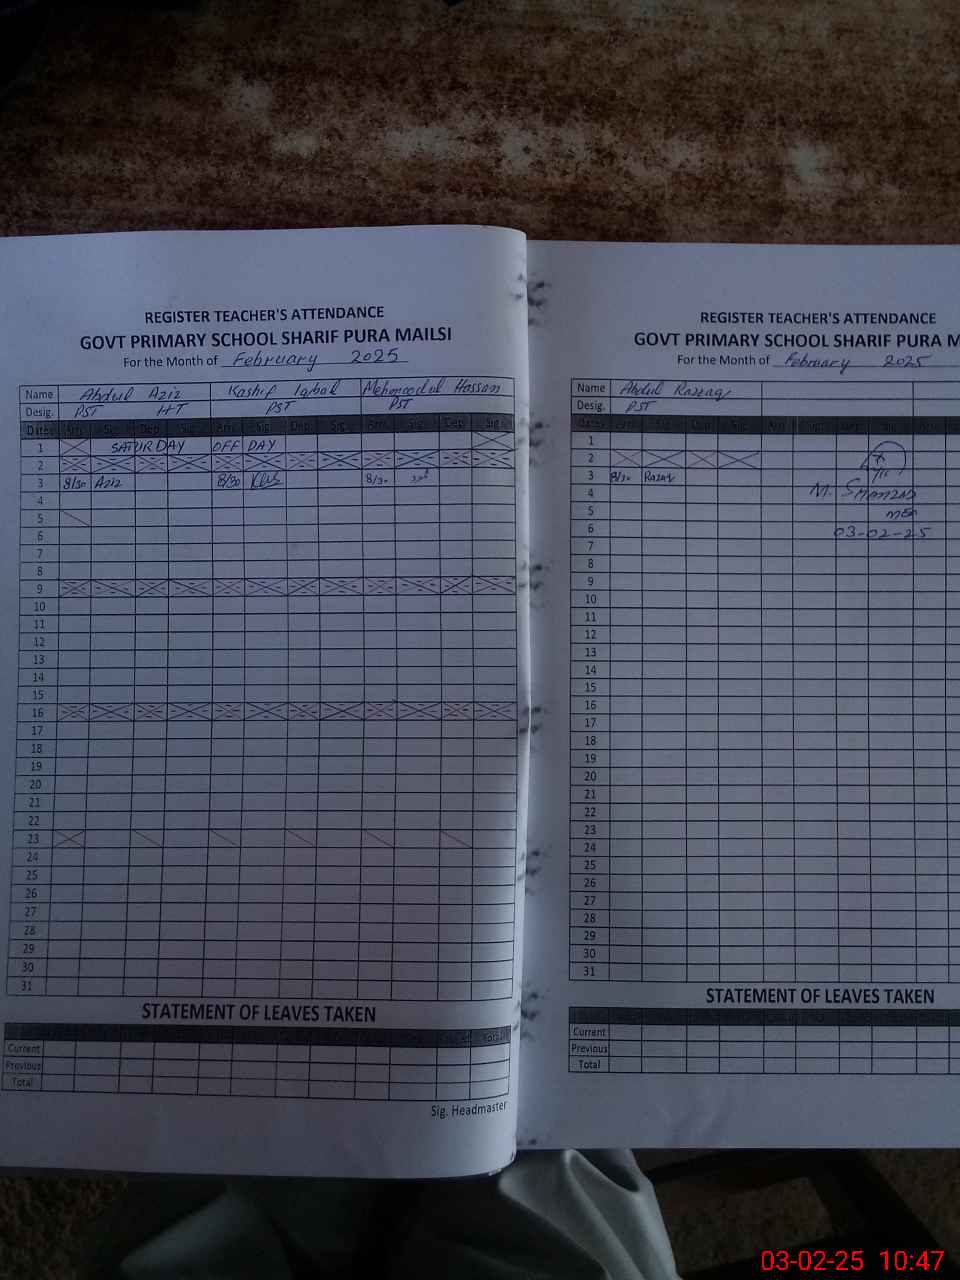 REGISTER TEACHER'S ATTENDANCE
GOVT PRIMARY SCHOOL SHARIF PURA MAILSI
For the Month of February 2025
Name Abdul Aziz Kashif Iqbal Mehmood ul Hassan
Desig. PST HT PST PST
Dates Arr. Sig. Dep. Sig. Arr. Sig. Dep. Sig. Arr. Sig. Dep. Sig.
1 SATURDAY OFF DAY
2
3 8/30 Aziz 8/30 8/30
4
5
6
7
8
9
10
11
12
13
14
15
16
17
18
19
20
21
22
23
24
25
26
27
28
29
30
31
STATEMENT OF LEAVES TAKEN
Current
Previous
Total
Sig. Headmaster
REGISTER TEACHER'S ATTENDANCE
GOVT PRIMARY SCHOOL SHARIF PURA M
For the Month of February 2025
Name Abdul Razzaq
Desig. PST
Dates Arr. Sig. Dep. Sig. Arr. Sig. Dep. Sig. Arr.
1
2
3 8/30 Razaq
4 M.
5 MEA
6 03-02-25
7
8
9
10
11
12
13
14
15
16
17
18
19
20
21
22
23
24
25
26
27
28
29
30
31
STATEMENT OF LEAVES TAKEN
Current
Previous
Total
03-02-25 10:47